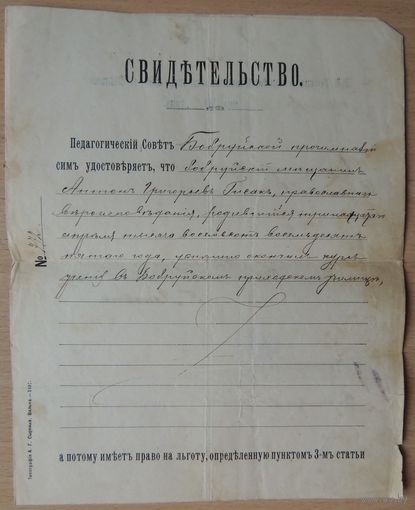 СВИДѢТЕЛЬСТВО.
Педагогическій Совѣтъ Бобруйской прогимназіи
симъ удостовѣряетъ, что Бобруйскій мѣщанинъ
Антонъ Григорьевъ православнаго
вѣроисповѣданія, родившійся тринадцатаго
апрѣля тысяча восемьсотъ восемьдесятъ
пятаго года, успѣшно окончилъ курсъ
ученія въ Бобруйскомъ приходскомъ училищѣ,
№
а потому имѣетъ право на льготу, опредѣленную пунктомъ 3-мъ статьи
Типографія А. Г. Сыркина, Вильна.